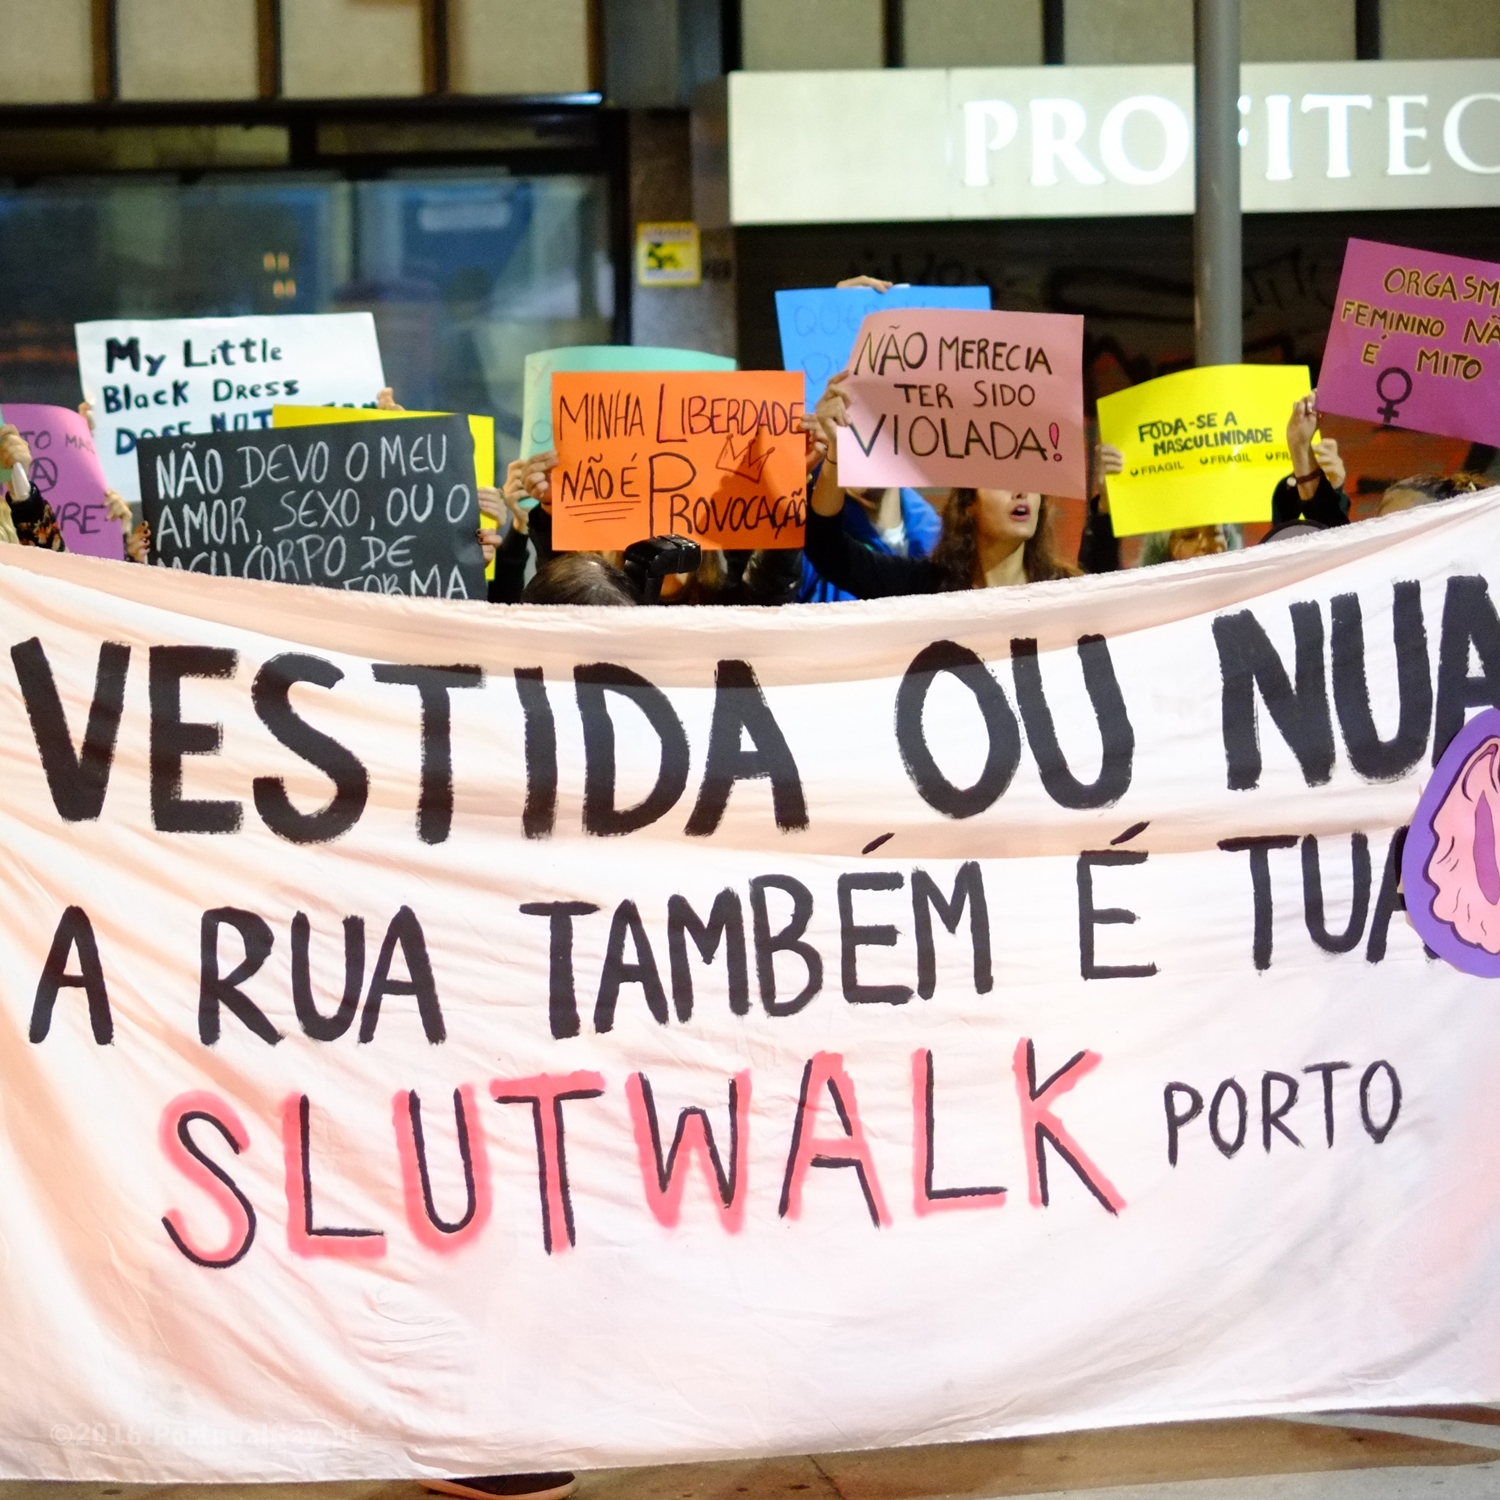 PROFITEC
My Little
Black Dress
DOES NOT
NÃO DEVO O MEU
AMOR, SEXO, OU O
MEU CORPO DE
FORMA
MINHA LIBERDADE
NÃO É PROVOCAÇÃO
QUERO
NÃO MERECIA
TER SIDO
VIOLADA!
FODA-SE A
MASCULINIDADE
FRAGIL FRAGIL FR
ORGASM
FEMININO NÃ
É MITO
VESTIDA OU NUA
A RUA TAMBÉM É TUA
SLUTWALK PORTO
©2016 Portugalgay.pt